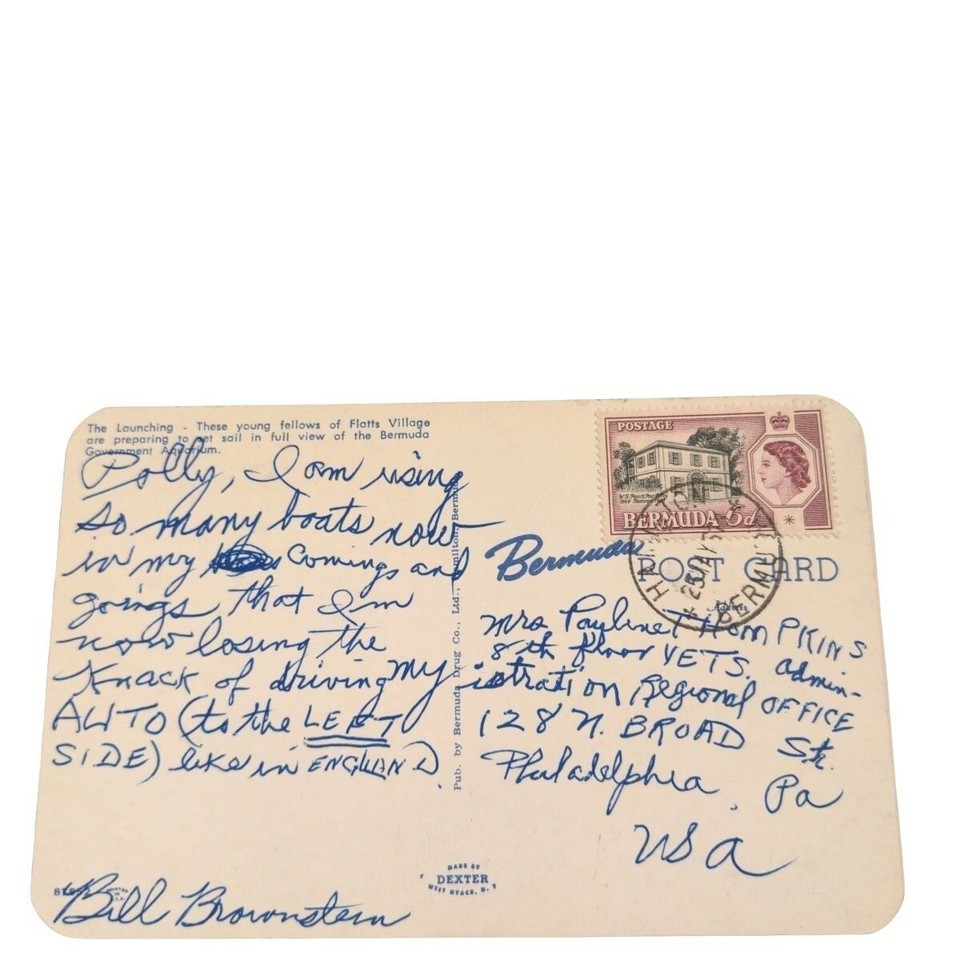 The Launching - These young fellows of Flatts Village
are preparing to set sail in full view of the Bermuda
Government Aquarium.
Polly, I am using
so many boats now
in my comings and
goings, that I'm
now losing the
knack of driving my
AUTO (to the LEFT
SIDE) like in ENGLAND
Bill Brownstein
Pub. by Bermuda Drug Co., Ltd., Hamilton, Bermuda
MADE BY
DEXTER
WEST NYACK, N. Y.
POSTAGE
BERMUDA 6d
HAMILTON
25 MAY 57
BERMUDA
Bermuda
POST CARD
Address
Mrs Pauline Hom PKINS
8th floor VETS. admin-
istration Regional OFFICE
128 N. BROAD Str.
Philadelphia, Pa
USA